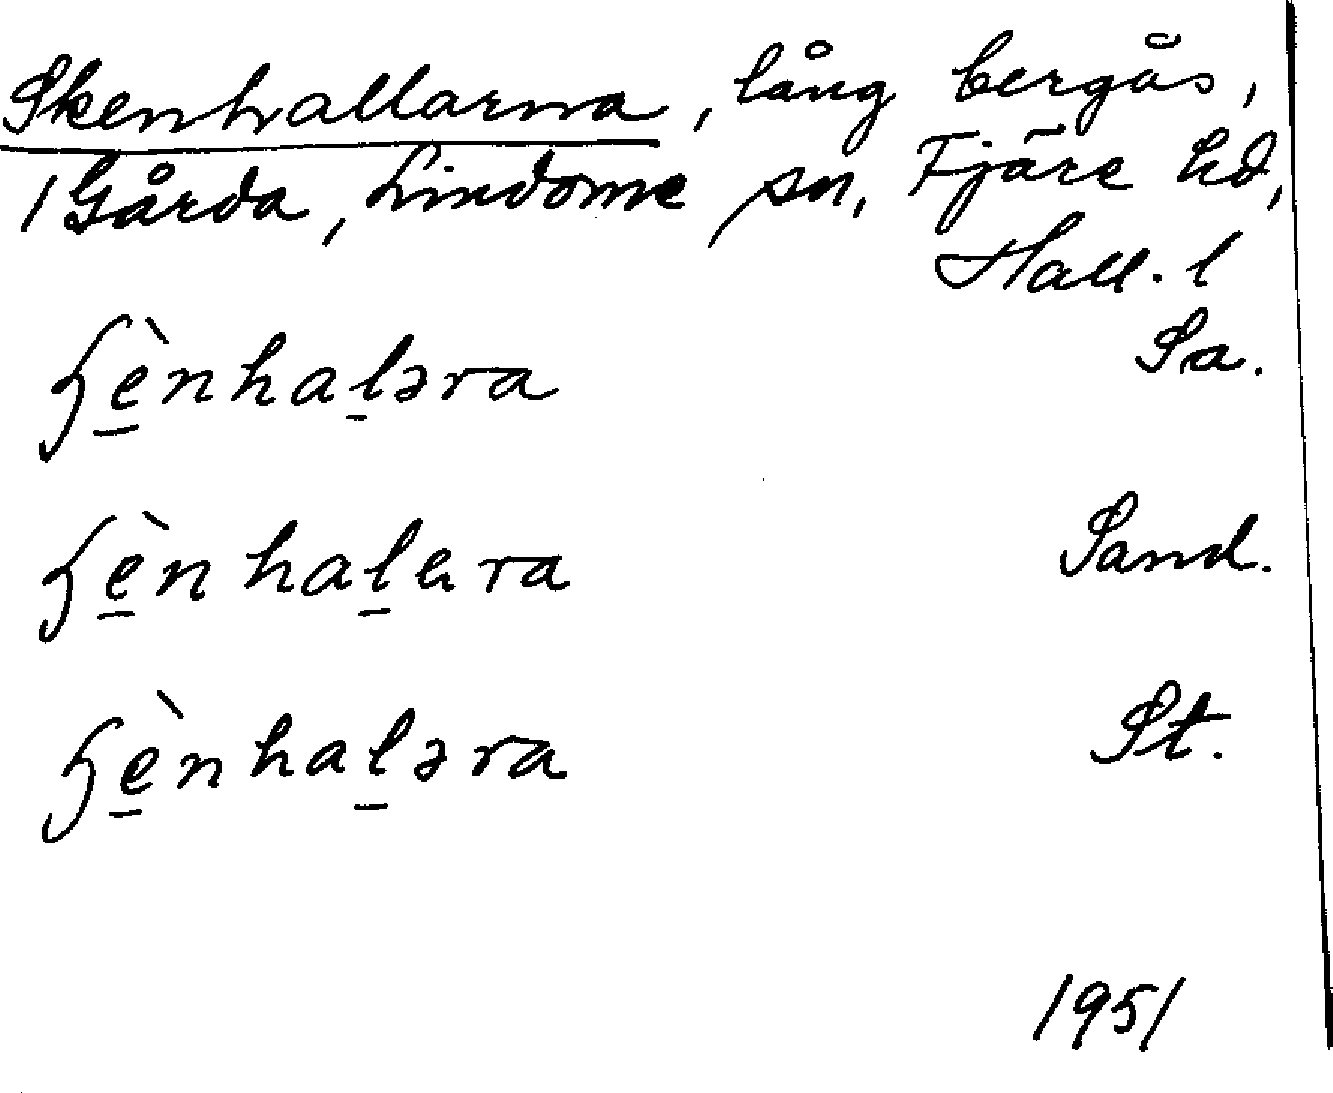 Skenhallarna, lång bergås,
1 Gårda, Lindome sn, Fjäre hd,
Hall. l
ʃè̱nhaḻəra Sa.
ʃè̱nhaḻɐra Sand.
ʃè̱nhaḻəra St.
1951